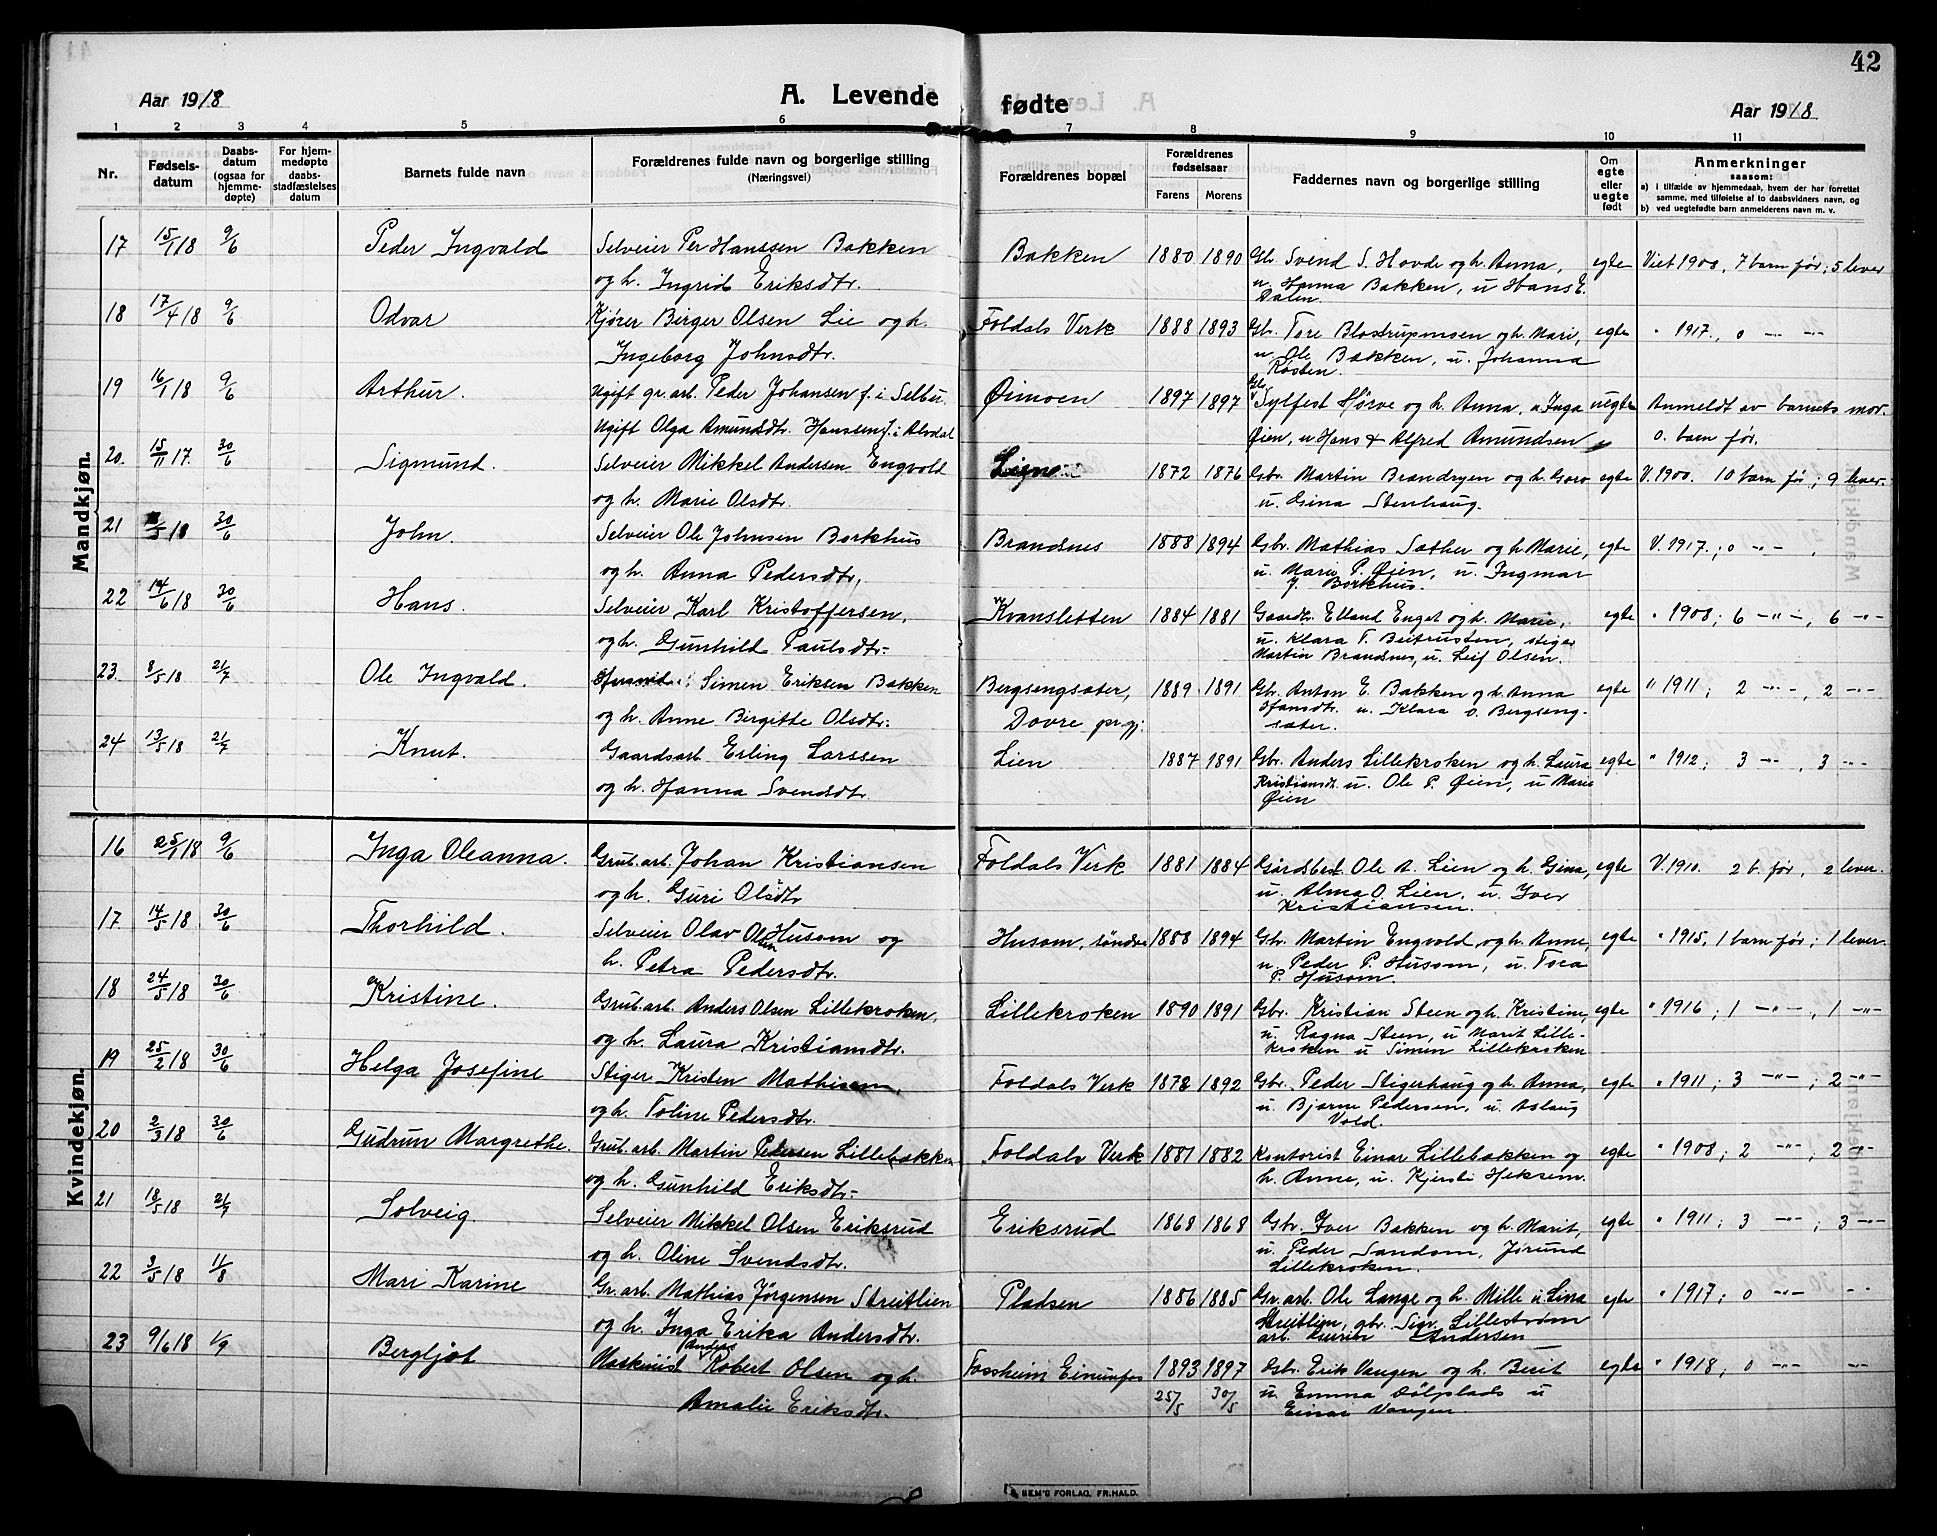 42
Aar 1918
A. Levende
fødte
Aar 1918
1 2 3 4 5 6 7 8 9 10 11
Nr.
Fødsels-
datum
Daabs-
datum
(ogsaa for
hjemme-
døpte)
For hjem-
medøpte
daabs-
stadfæstelses
datum
Barnets fulde navn
Forældrenes fulde navn og borgerlige stilling
(Næringsvei)
Forældrenes bopæl
Forældrenes
fødselsaar
Farens Morens
Faddernes navn og borgerlige stilling
Om
egte
eller
uegte
født
Anmerkninger
saasom:
a) i tilfælde av hjemmedaab, hvem der har forrettet
samme, med tilføielse af to daabsvidners navn, og
b) ved uegtefødte barn anmelderens navn m. v.
Mandkjøn.
17 15/1 18 9/6 Peder Ingvald Selveier Per Hanssen Bakken Bakken 1880 1890 Gb. Svend S. Hovde og h. Anna, egte Viet 1908, 7 barn før; 5 lever
og h. Ingrid Eriksdtr. u. Hanna Bakken, u Hans E.
Dalen
18 17/4 18 9/6 Odvar Kjører Birger Olsen Lie og h. Foldals Verk 1888 1893 Gb. Tore Blostrupmoen og h. Mari, egte " 1917, 0 -"- -"-
Ingeborg Johnsdtr. u. Ole Bakken, u. Johanna
Røsten
19 16/1 18 9/6 Arthur. Ugift gr. arb. Peder Johansen f. i Selbu. Øimoen 1897 1897 Gb. Sylfest Hørve og h. Anna, u Inga uegte Anmeldt av barnets mor.
Ugift Olga Amundsdtr. Hanssen f. i Alvdal Øien, u Hans & Alfred Amundsen 0. barn før.
20. 15/11 17. 30/6 Sigmund. Selveier Mikkel Andersen Engvold 1872 1876 Gbr. Martin Brandryen og h. Goro egte V. 1900. 10 barn før; 9 lever.
og h. Marie Olsdtr. u. Gina Stenhaug.
21 /5 18 30/6 John. Selveier Ole Johnsen Borkhus Brandsnes 1888 1894 Gbr. Mathias Sæther og h. Marie, egte V. 1917.; 0 -"- ,
og h. Anna Pedersdtr, u. Marie P. Øien, u. Ingmar
J. Borkhus.
22 14/6 18 30/6 Hans. Selveier Karl Kristoffersen, Kvansletten 1884 1881 Gaardbr. Elland Enget og h. Marie, egte " 1908; 6 -"-, 6 -"-
og h. Gunhild Paulsdtr. u. Klara T. Beitrusten, stiger
Martin Brandsnes, u. Leif Olsen.
23. 8/5 18 21/7 Ole Ingvald. Simen Eriksen Bakken Bergsengsæter, 1889 1891 Gbr. Anton E. Bakken og h. Anna egte " 1911; 2 -"-, 2 -"-
og h. Anne Birgitte Olsdtr. Dovre pr.gj. Hansdtr. u. Klara O. Bergseng-
sæter.
24 13/5 18 21/7 Knut. Gaardsarb. Erling Larssen Lien 1887 1891 Gbr. Anders Lillekroken og h. Laura egte " 1912; 3 -"-, 3 -"-
og h. Hanna Svendsdtr. Kristiansdt. u. Ole P. Øien, u Marie
Øien
Kvindekjøn.
16 25/1 18 9/6 Inga Oleanna. Grub. arb. Johan Kristiansen Foldals Verk 1881 1884 Gårdbest. Ole A. Lien og h. Gina, egte V. 1910. 2 b. før, 2 lever.
og h. Guri Olsdtr u. Alma O. Lien, u. Iver
Kristiansen.
17. 14/5 18. 30/6 Thorhild. Selveier Olav Olsen Husom og Husom, søndre 1888 1894 Gb. Martin Engvold og h. Anne, egte " 1915, 1 barn før; 1 lever.
h. Petra Pedersdtr. u. Peder P. Husom, u. Tora
P. Husom.
18 24/5 18 30/6 Kristine. Grub. arb. Anders Olsen Lillekroken, Lillekroken 1890 1891 Gbr. Kristian Steen og h. Kristine, egte " 1916; 1 -"-, 1 -"-
og h. Laura Kristiansdtr. u. Ragna Steen, u Marit Lille-
kroken u Simen Lillekroken
19 25/2 18 30/6 Helga Josefine Stiger Kristen Mathisen, Foldals Verk 1878 1892 Gbr. Peder Stigerhaug og h. Anna, egte " 1911; 3 -"-; 2 -"-
og h. Toline Pedersdtr. u. Bjarne Pedersen, u. Aslaug
Vold.
20 2/3 18 30/6 Gudrun Margrethe. Grub. arb. Martin Pedersen Lillebakken Foldals Verk 1881 1882 Kontorist Einar Lillebakken og egte " 1908; 2 -"-; 2 -"-
og h. Gunhild Eriksdtr. h. Anne, u. Kjersti Heksem.
21 18/5 18 21/7 Solveig Selveier Mikkel Olsen Eriksrud Eriksrud 1868 1868 Gbr. Iver Bakken og h. Marit, egte " 1911; 3 -"-; 3 -"-
og h. Oline Svendsdtr. u. Peder Sandom, Jørund
Lillekroken.
22 3/5 18 11/8 Mari Karine Gr. arb. Mathias Jørgensen Streitlien Pladsen 1886 1885 Gr. arb. Ole Lange og h. Mille u Lina egte " 1917; 0 -"- -"-
og h. Inga Erika Andersdtr. Streitlien, gbr. Sigv. Lillestrøm
arb. Andersen
23 9/6 18 1/9 Bergljot Maskinist Anders Robert Olsen og h. Fossheim Einunfos 1893 1897 Gbr. Erik Vangen og h. Berit egte " 1918; 0 -"- -"-
Amalie Eriksdtr. 25/5 30/5 u. Emma Dølplads u
Einar Vangen
SEM'S FORLAG, FR.HALD.